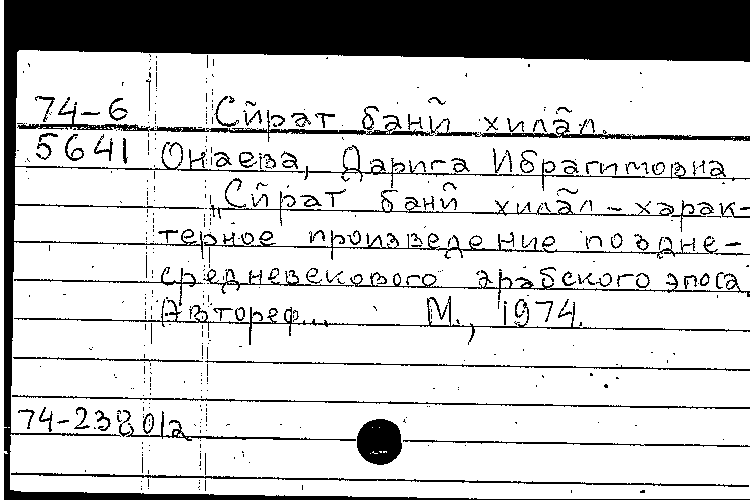 74-6 Сӣрат банӣ хила̄л.
5641 Онаева, Дарига Ибрагимовна.
„Сӣрат банӣ хила̄л – харак-
терное произведение поздне-
средневекового арабского эпоса.
Автореф... М., 1974.
74-23801а